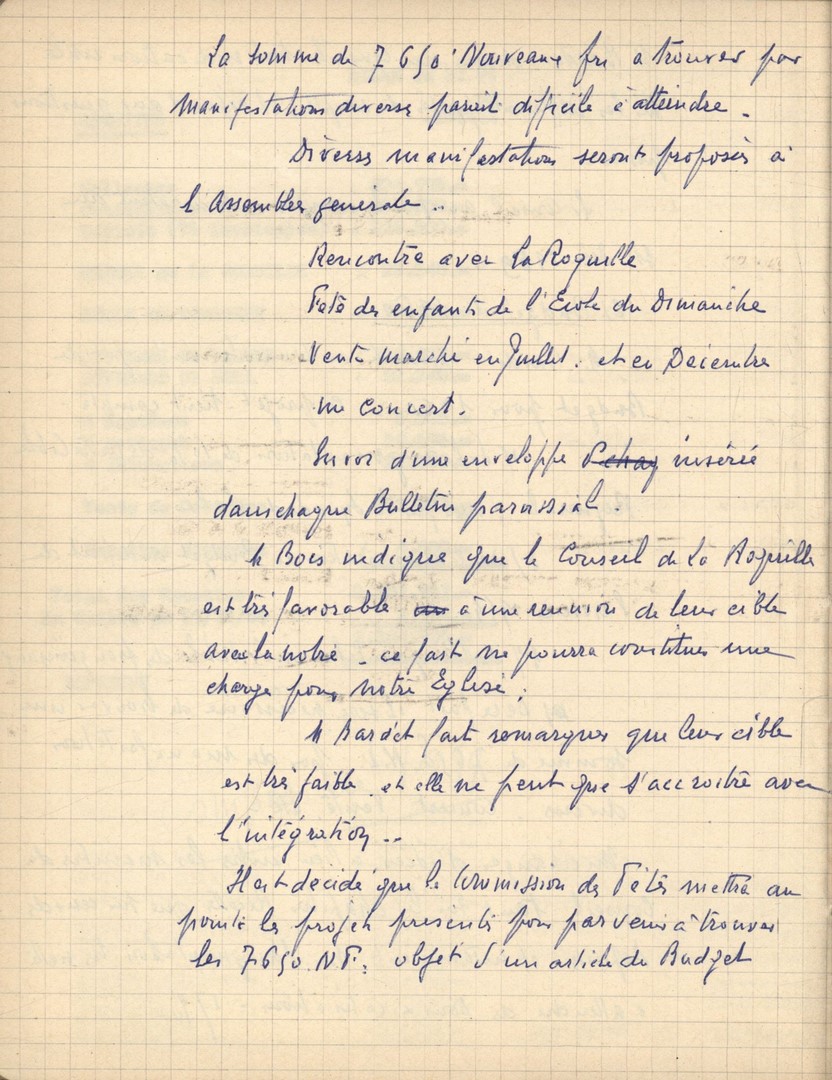 La somme de 7 650 Nouveaux frs a trouver par
manifestations diverses parait difficile à atteindre.
Diverses manifestations seront proposées à
l'Assemblée générale..
Rencontre avec La Roquille
Fête des enfants de l'Ecole du Dimanche
Vente marché en Juillet. et en Décembre
un concert.
Envoi d'une enveloppe insérée
dans chaque Bulletin paroissial.
M Bois indique que le Conseil de La Roquille
est très favorable à une reunion de leur cible
avec la notre - ce fait ne pourra constituer une
charge pour notre Eglise.
M Bardet fait remarquer que leur cible
est très faible et elle ne peut que s'accroitre avec
l'intégration..
Il est décidé que la Commission des Fêtes mettra au
point les projets présentés pour parvenir à trouver
les 7650 NF. objet d'un article du Budget